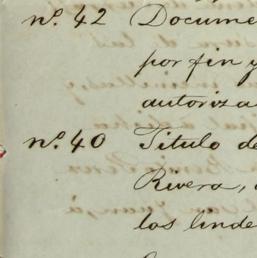 nº. 42 Docume
por fin y
autoriza
nº. 40 Titulo de
Rivera,
los linde